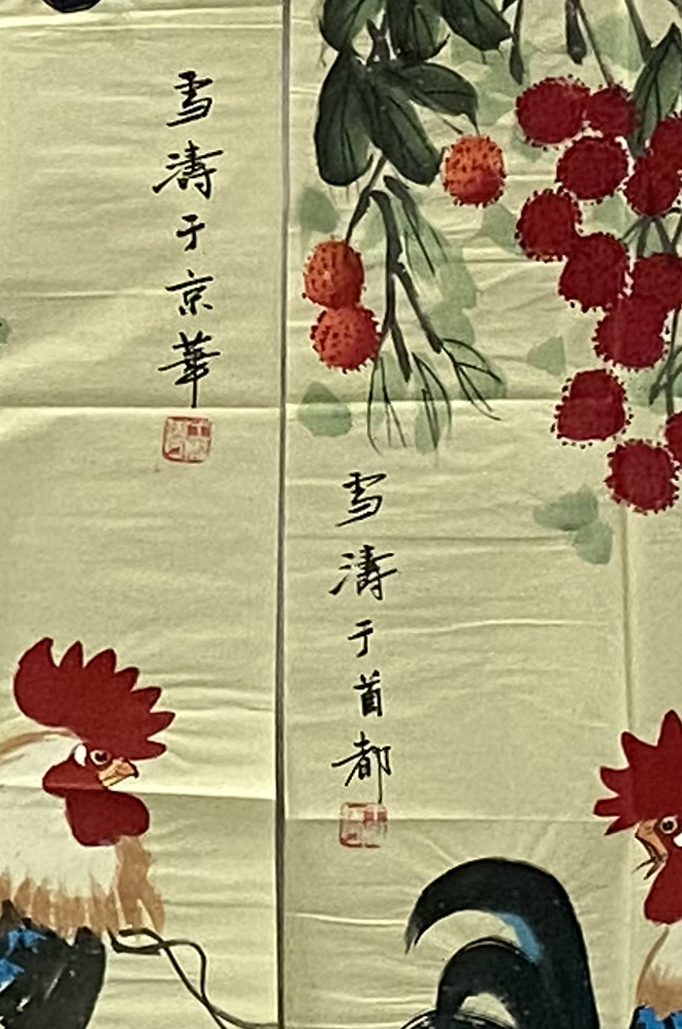 雪濤于京華
雪濤于首都